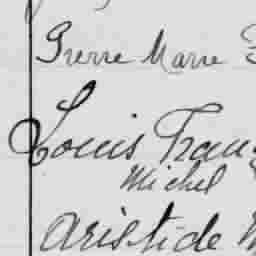 Pierre Marie
Louis Franç
Michel
Aristide